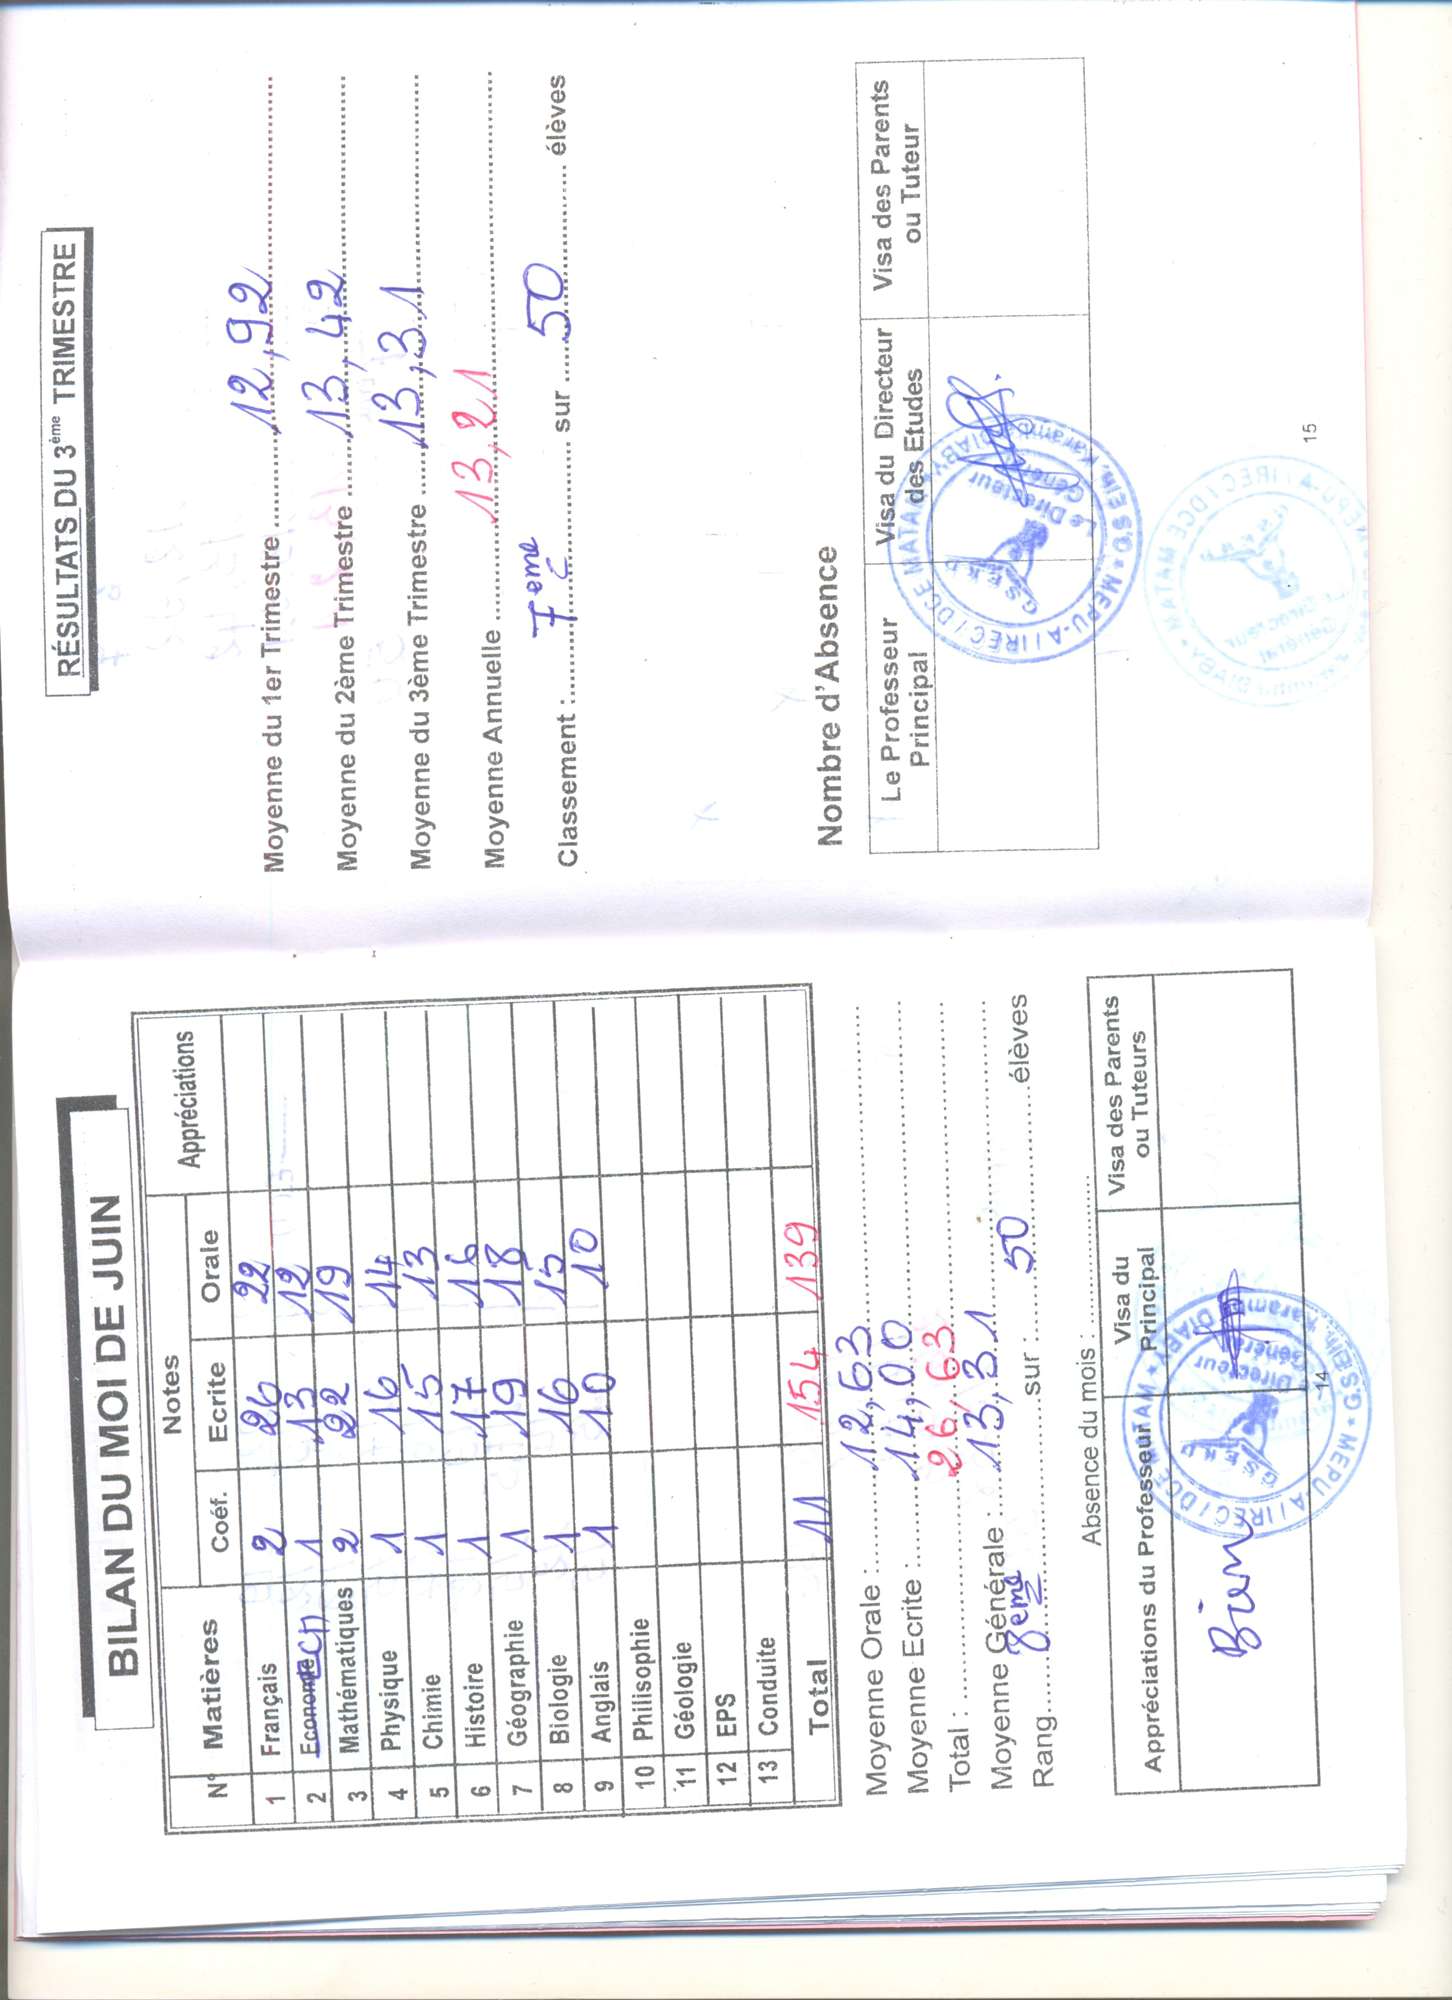 BILAN DU MOI DE JUIN
N° Matières Notes Appréciations
Coéf. Ecrite Orale
1 Français 2 26 22
2 Economie ECM 1 13 12
3 Mathématiques 2 22 19
4 Physique 1 16 14
5 Chimie 1 15 13
6 Histoire 1 17 16
7 Géographie 1 19 18
8 Biologie 1 16 15
9 Anglais 1 10 10
10 Philisophie
11 Géologie
12 EPS
13 Conduite
Total 11 154 139
Moyenne Orale : 12,63
Moyenne Ecrite : 14,00
Total : 26,63
Moyenne Générale : 13,31
Rang 8eme sur : 50 élèves
Absence du mois :
Appréciations du Professeur Visa du Principal Visa des Parents ou Tuteurs
Bien
14
RÉSULTATS DU 3ème TRIMESTRE
Moyenne du 1er Trimestre 12,92
Moyenne du 2ème Trimestre 13,42
Moyenne du 3ème Trimestre 13,31
Moyenne Annuelle 13,21
Classement : 7eme sur 50 élèves
Nombre d'Absence
Le Professeur Principal Visa du Directeur des Etudes Visa des Parents ou Tuteur
Le Directeur Général
G.S.E.K.D
15